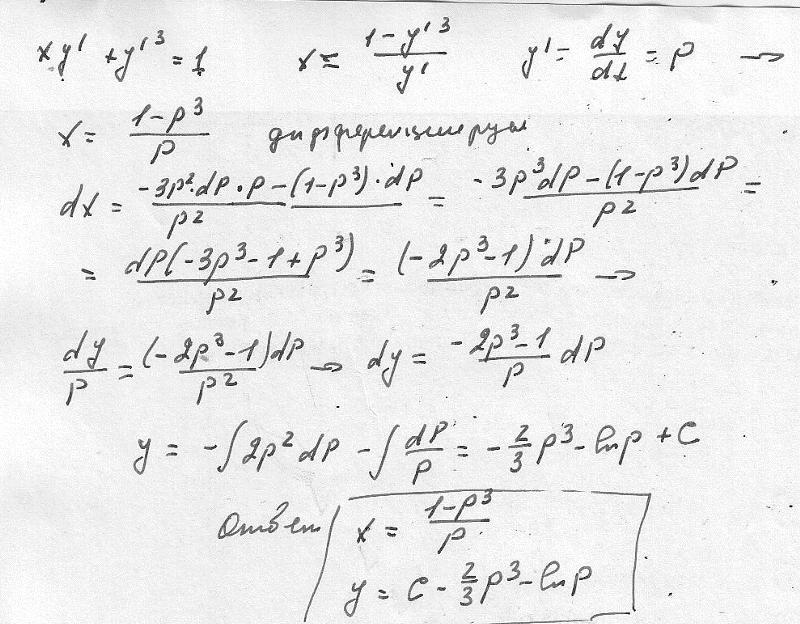 xy' + y'³ = 1   x = (1-y'³)/y'   y' = dy/dx = p →
x = (1-p³)/p   дифференцируем
dx = (-3p²·dp·p-(1-p³)·dp)/p² = (-3p³dp-(1-p³)dp)/p² =
= (dp(-3p³-1+p³))/p² = ((-2p³-1)·dp)/p² →
dy/p = ((-2p³-1)dp)/p² → dy = (-2p³-1)/p dp
y = -∫2p²dp - ∫dp/p = -2/3 p³ - ln p + C
Ответ x = (1-p³)/p
y = C - 2/3 p³ - ln p